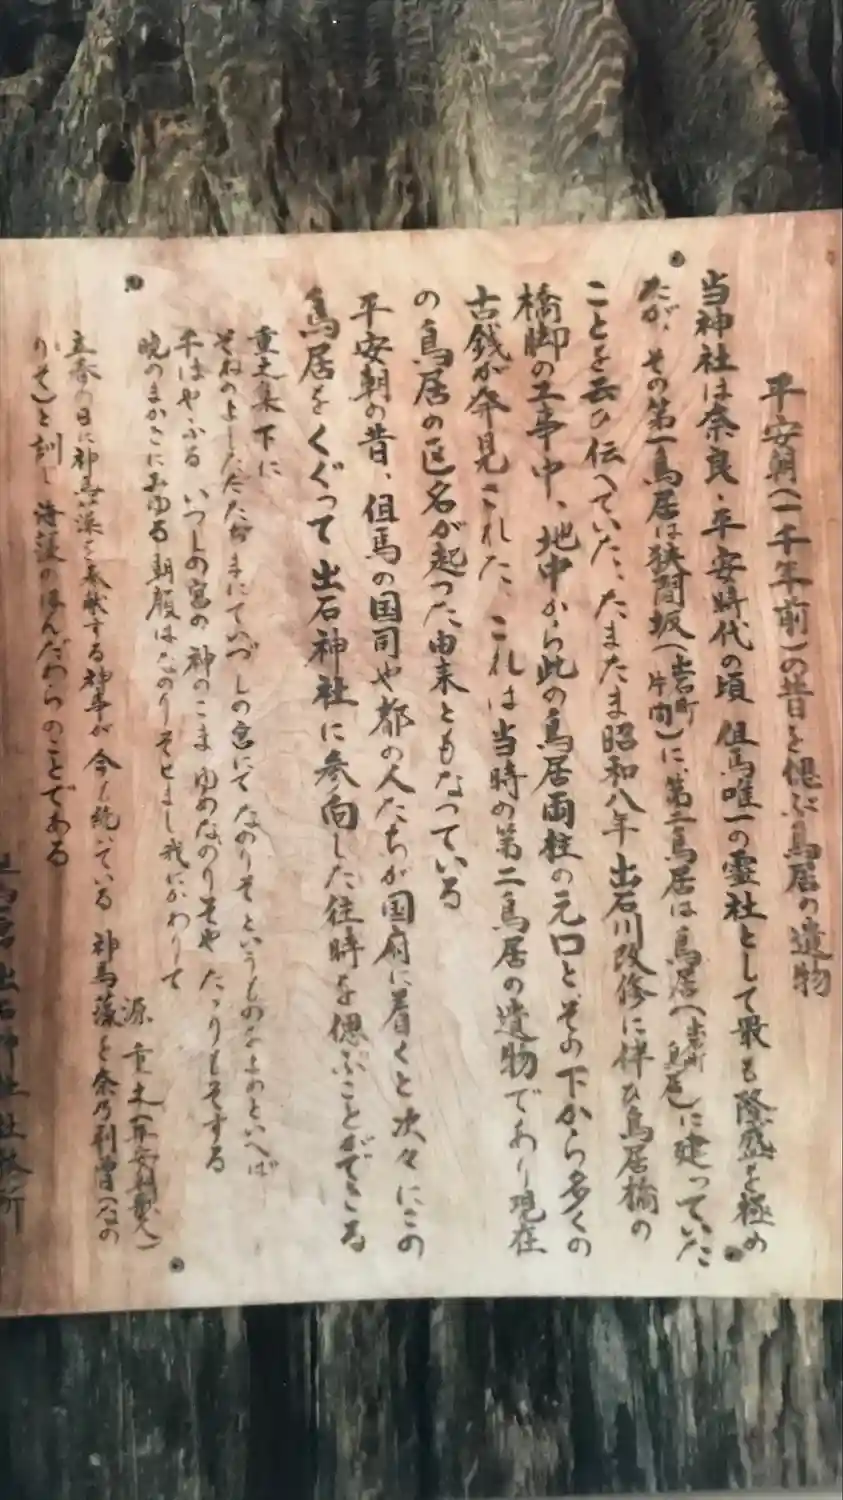 平安朝(一千年前)の昔を偲ぶ鳥居の遺物
当神社は奈良・平安時代の頃 但馬唯一の霊社として最も隆盛を極め
たが、その第一鳥居は狭間坂(出石町片間)に、第二鳥居は鳥居(出石町鳥居)に建っていた
ことを云ひ伝へていた、たまたま昭和八年出石川改修に伴ひ鳥居橋の
橋脚の工事中、地中から此の鳥居両柱の元口と、その下から多くの
古銭が発見された、これは当時の第二鳥居の遺物であり現在
の鳥居の区名が起った由来ともなっている
平安朝の昔、但馬の国司や都の人たちが国府に着くと次々にこの
鳥居をくぐって出石神社に参向した往時を偲ぶことができる
重之集下に
そねのよしただたぢまにていづしの宮にて なのりそというものをよめといへば
千はやふる いつしの宮の 神のこま ゆめなのりそや たゝりもそする
暁のまがきにみゆる朝顔は なのりそせまし我にかわりて
源 重之(平安朝歌人)
立春の日に神馬藻を奉献する神事が今も続いている 神馬藻を奈乃利曽(なの
りそ)と訓し 海藻のほんだわらのことである
出石神社社務所